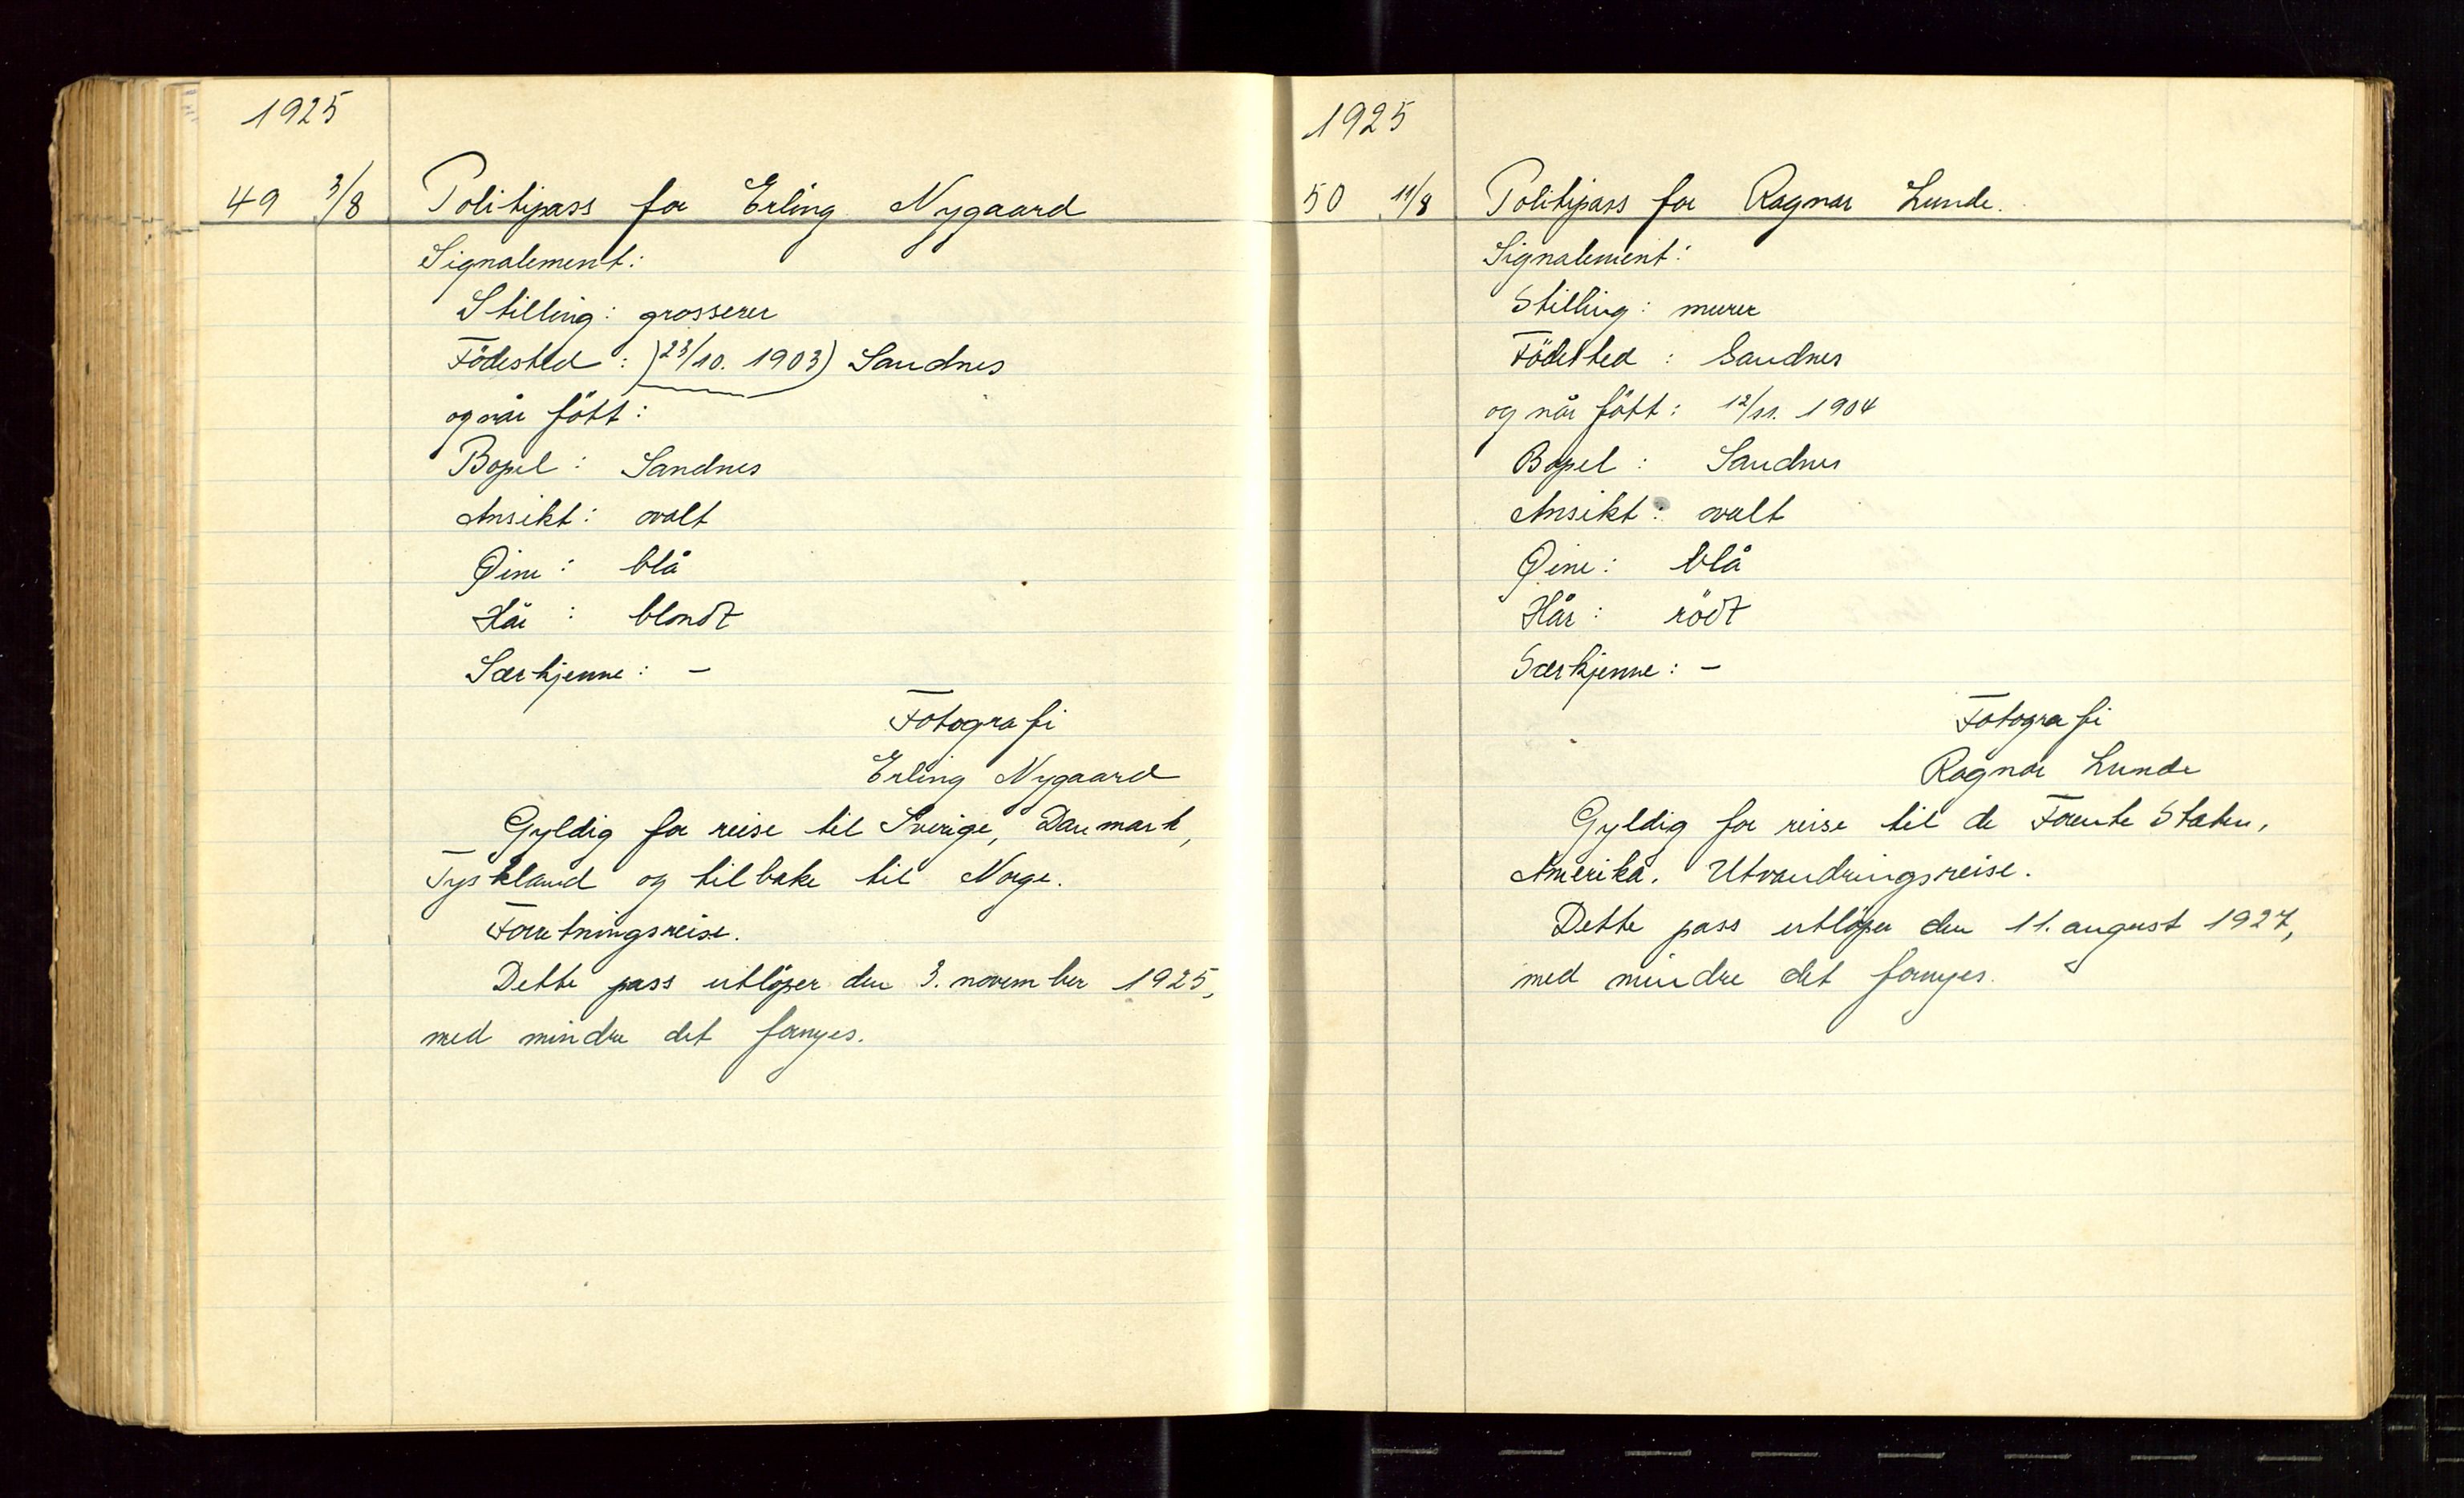 1925
49 3/8 Politipass for Erling Nygaard
Signalement:
Stilling: grosserer
Födested: (23/10. 1903) Sandnes
og når fött:
Bopel: Sandnes
Ansikt: ovalt
Øine: blå
Hår: blondt
Særkjenne: –
Fotografi
Erling Nygaard
Gyldig for reise til Sverige, Danmark,
Tyskland og tilbake til Norge.
Forretningsreise.
Dette pass utlöper den 3. november 1925,
med mindre det fornyes.
1925
50 11/8 Politipass for Ragnar Lunde.
Signalement:
Stilling: murer
Födested: Sandnes
og når fött: 12/11. 1904
Bopel: Sandnes
Ansikt: ovalt
Øine: blå
Hår: rödt
Særkjenne: –
Fotografi
Ragnar Lunde
Gyldig for reise til de Forente Stater,
Amerika. Utvandringsreise.
Dette pass utlöper den 11. august 1927,
med mindre det fornyes.